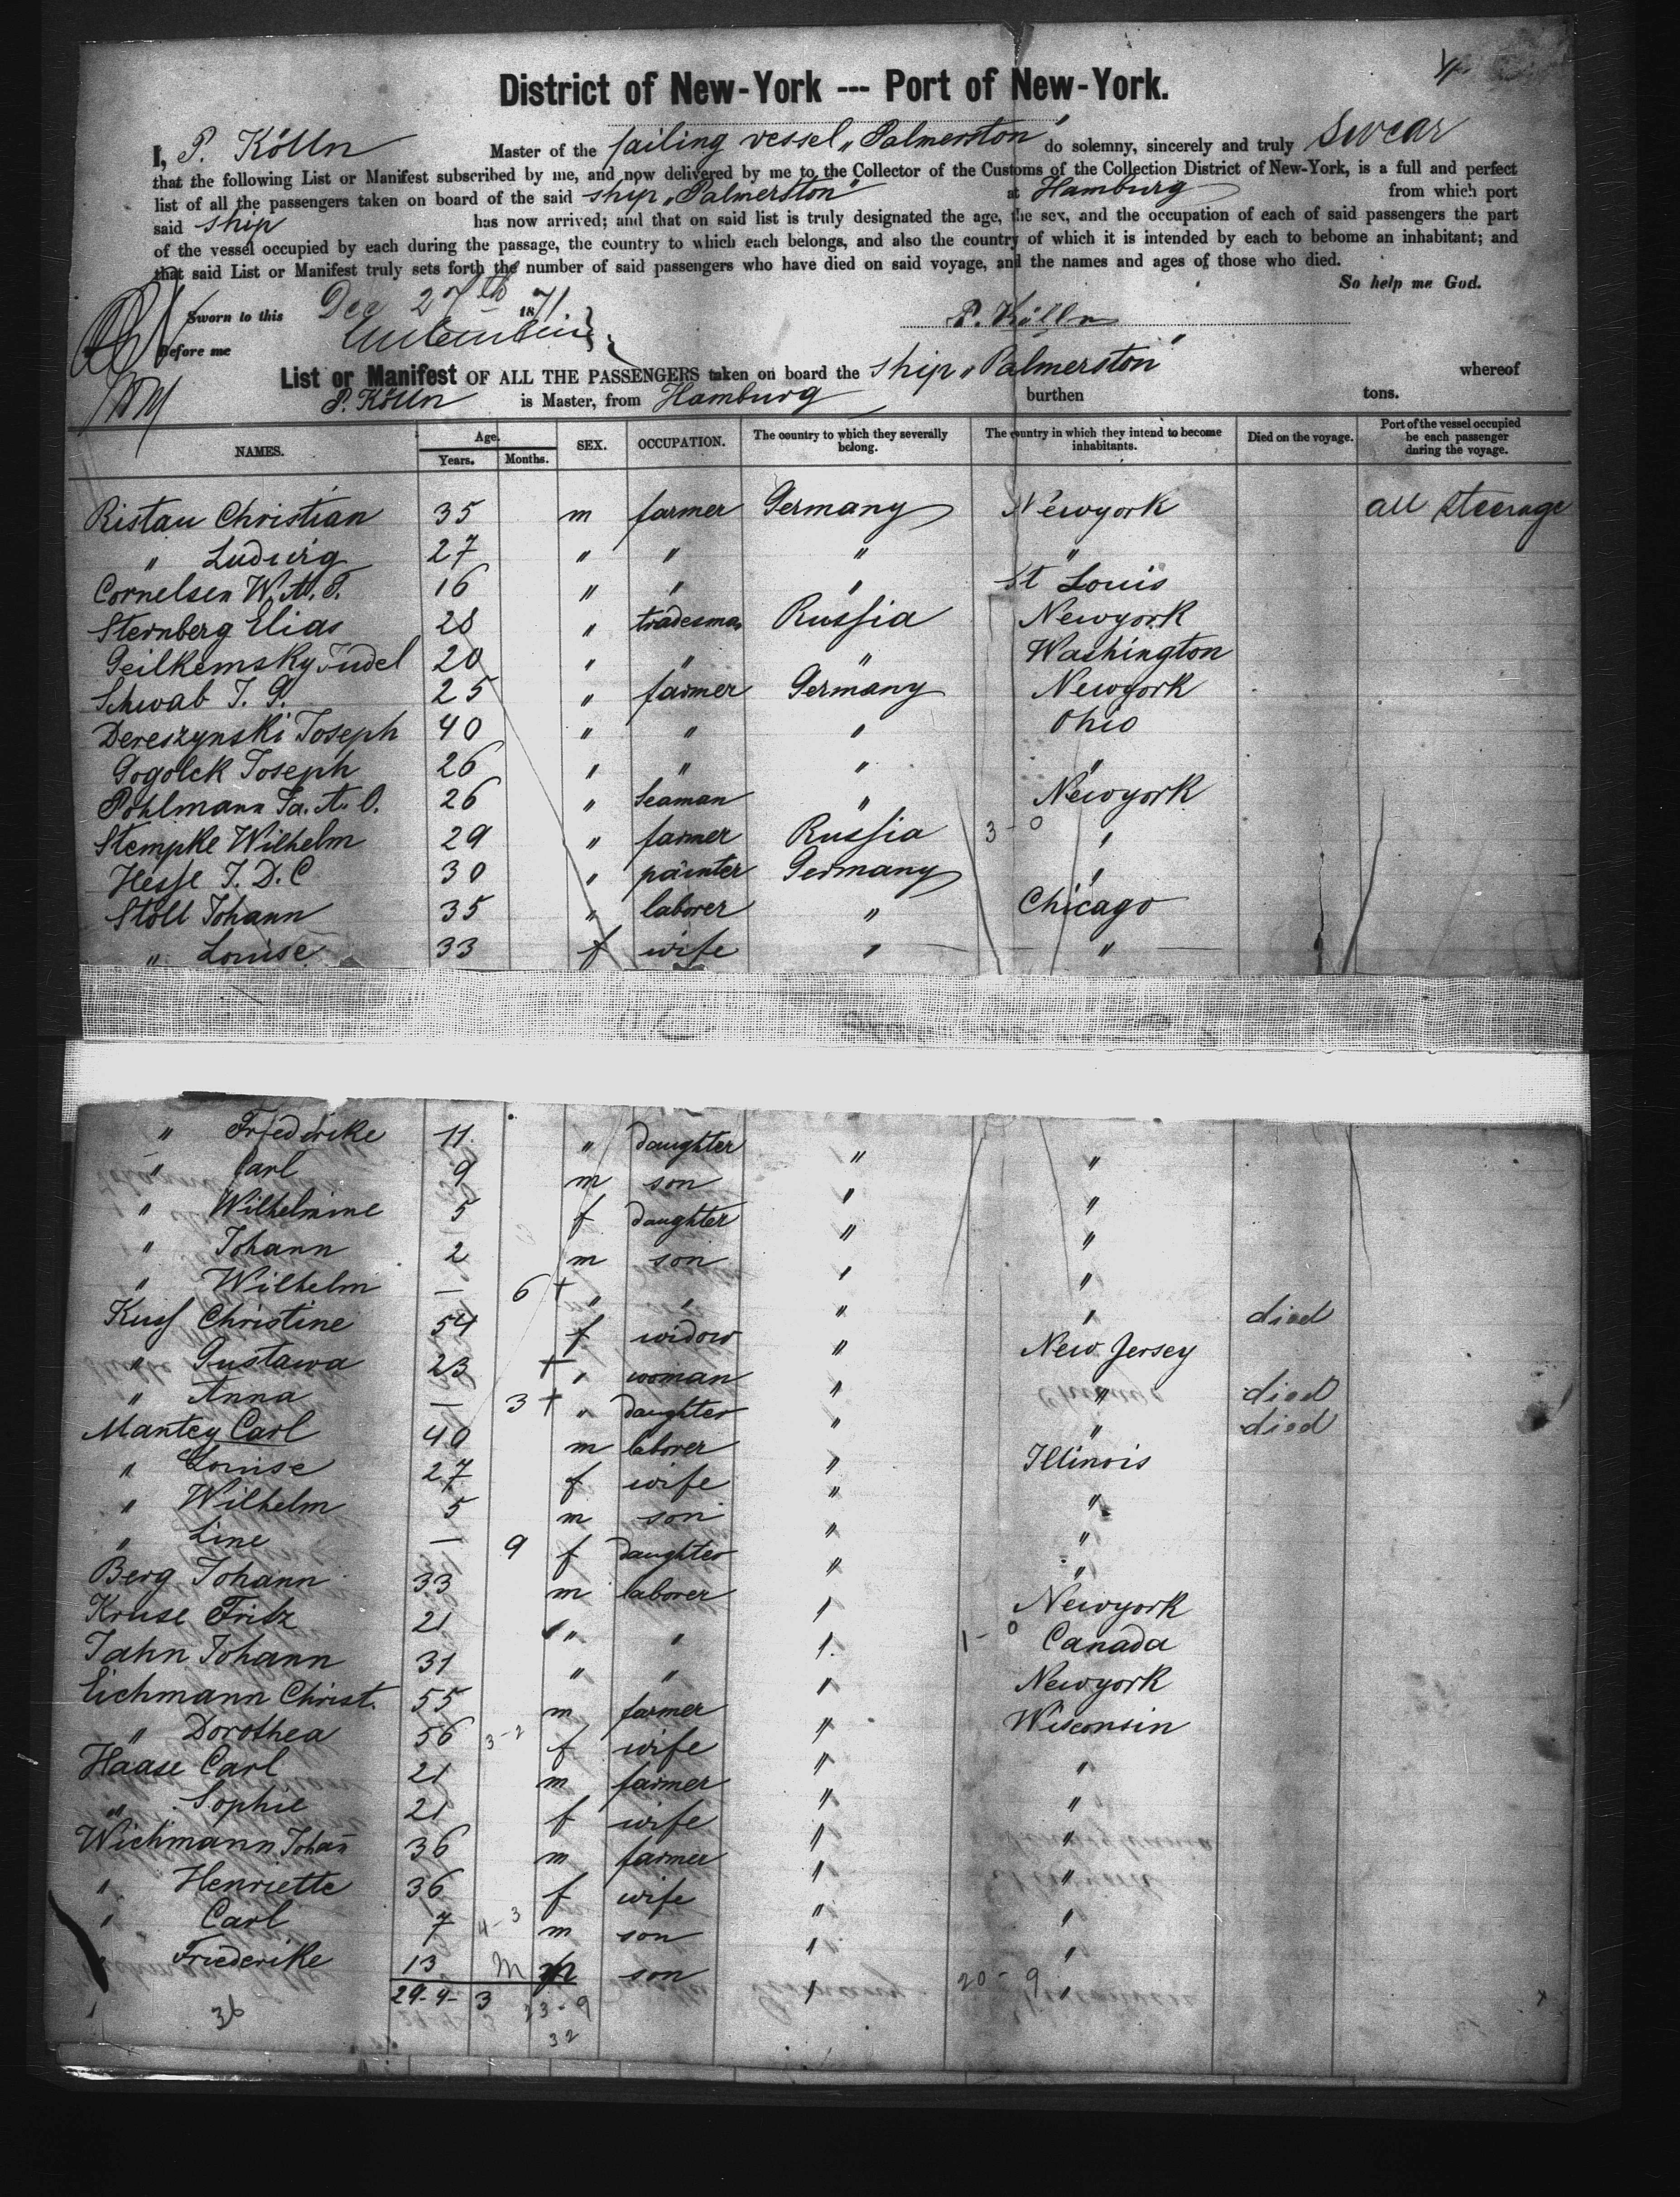 District of New-York --- Port of New-York.
I, P. Kölln Master of the sailing vessel „Palmerston" do solemny, sincerely and truly swear
that the following List or Manifest subscribed by me, and now delivered by me to the Collector of the Customs of the Collection District of New-York, is a full and perfect
list of all the passengers taken on board of the said ship „Palmerston" at Hamburg from which port
said ship has now arrived; and that on said list is truly designated the age, the sex, and the occupation of each of said passengers the part
of the vessel occupied by each during the passage, the country to which each belongs, and also the country of which it is intended by each to bebome an inhabitant; and
that said List or Manifest truly sets forth the number of said passengers who have died on said voyage, and the names and ages of those who died.
So help me God.
Sworn to this Dec 27th 1871
P. Kölln
Before me
List or Manifest OF ALL THE PASSENGERS taken on board the ship „Palmerston" whereof
P. Kölln is Master, from Hamburg burthen tons.
NAMES. Age. Years. Months. SEX. OCCUPATION. The country to which they severally belong. The country in which they intend to become inhabitants. Died on the voyage. Port of the vessel occupied be each passenger during the voyage.
Ristau Christian 35 m farmer Germany Newyork all steerage
" Ludwig 27 " " " "
Cornelsen W. A. P. 16 " " " St Louis
Sternberg Elias 28 " tradesman Russia Newyork
Geilkemsky Judel 20 " " " Washington
Schwab J. G. 25 " farmer Germany Newyork
Dereszynski Joseph 40 " " " Ohio
Gogolck Joseph 26 " " " "
Pohlmann Ja. A. O. 26 " seaman " Newyork
Stempke Wilhelm 29 " farmer Russia 3-0 "
Hesse J. D. C 30 " painter Germany "
Stöll Johann 35 " laborer " Chicago
" Louise 33 f wife " "
" Friederike 11 " daughter " "
" Carl 9 m son " "
" Wilhelmine 5 f daughter " "
" Johann 2 m son " "
" Wilhelm — 6 + " " " " died
Kuss Christine 54 f widow " New Jersey
" Gustawa 23 + " woman " " died
" Anna — 3 + " daughter " " died
Mantey Carl 40 m laborer " Illinois
" Louise 27 f wife " "
" Wilhelm 5 m son " "
" Line — 9 f daughter " "
Berg Johann 33 m laborer " Newyork
Kruse Fritz 21 " " " 1-0 Canada
Jahn Johann 31 " " " Newyork
Eichmann Christ. 55 m farmer " Wisconsin
" Dorothea 56 3-2 f wife " "
Haase Carl 21 m farmer " "
" Sophie 21 f wife " "
Wichmann Johan̄ 36 m farmer " "
" Henriette 36 f wife " "
" Carl 7 4-3 m son " "
" Friederike 13 m son " 20-9 "
29-4-3 23-9
36 32